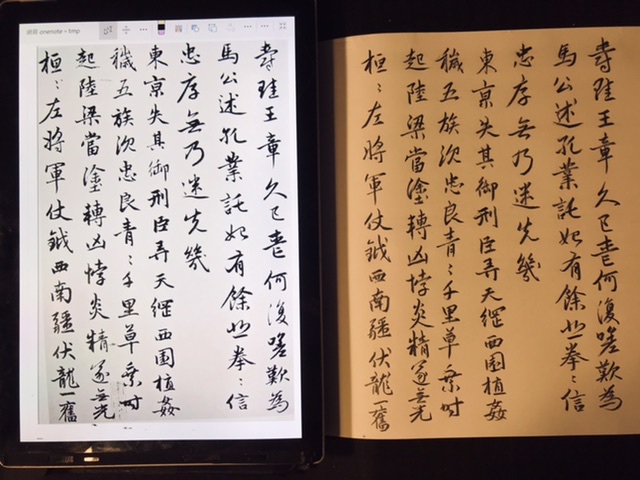 onenote › tmp
爵珪王章久已喪何復嗟歎為
馬公述孔業託始有餘悲拳〻信
忠厚無乃迷先幾
東京失其御刑臣弄天綱西園植姦
穢五族沉忠良青〻千里草乘時
起陸梁當塗轉凶悖炎精遂無光
桓〻左將軍仗鉞西南疆伏龍一奮
爵珪王章久已喪何復嗟歎為
馬公述孔業託始有餘悲拳〻信
忠厚無乃迷先幾
東京失其御刑臣弄天綱西園植姦
穢五族沉忠良青〻千里草乘時
起陸梁當塗轉凶悖炎精遂無光
桓〻左將軍仗鉞西南疆伏龍一奮